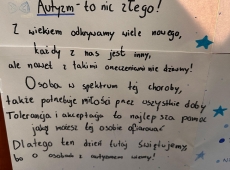 Autyzm - to nic złego!
Z wiekiem odkrywamy wiele nowego,
każdy z nas jest inny,
ale nawet z takimi orzeczeniami nie dziwny!
Osoba w spektrum tej choroby,
także potrzebuje miłości przez wszystkie doby
Tolerancja i akceptacja to najlepsza pomoc
jaką możesz tej osobie ofiarować
Dlatego ten dzień tutaj świętujemy
bo o osobach z autyzmem wiemy!